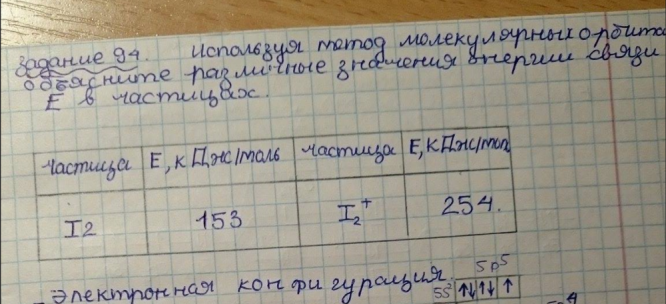 задание 94. Используя метод молекулярных орбита
объясните различные значения энергии связи
E в частицах.
частица E, кДж/моль частица E, кДж/мол
I2 153 I₂⁺ 254.
- электронная конфигурация. 5p⁵
5s² ↑↓ ↑↓ ↑